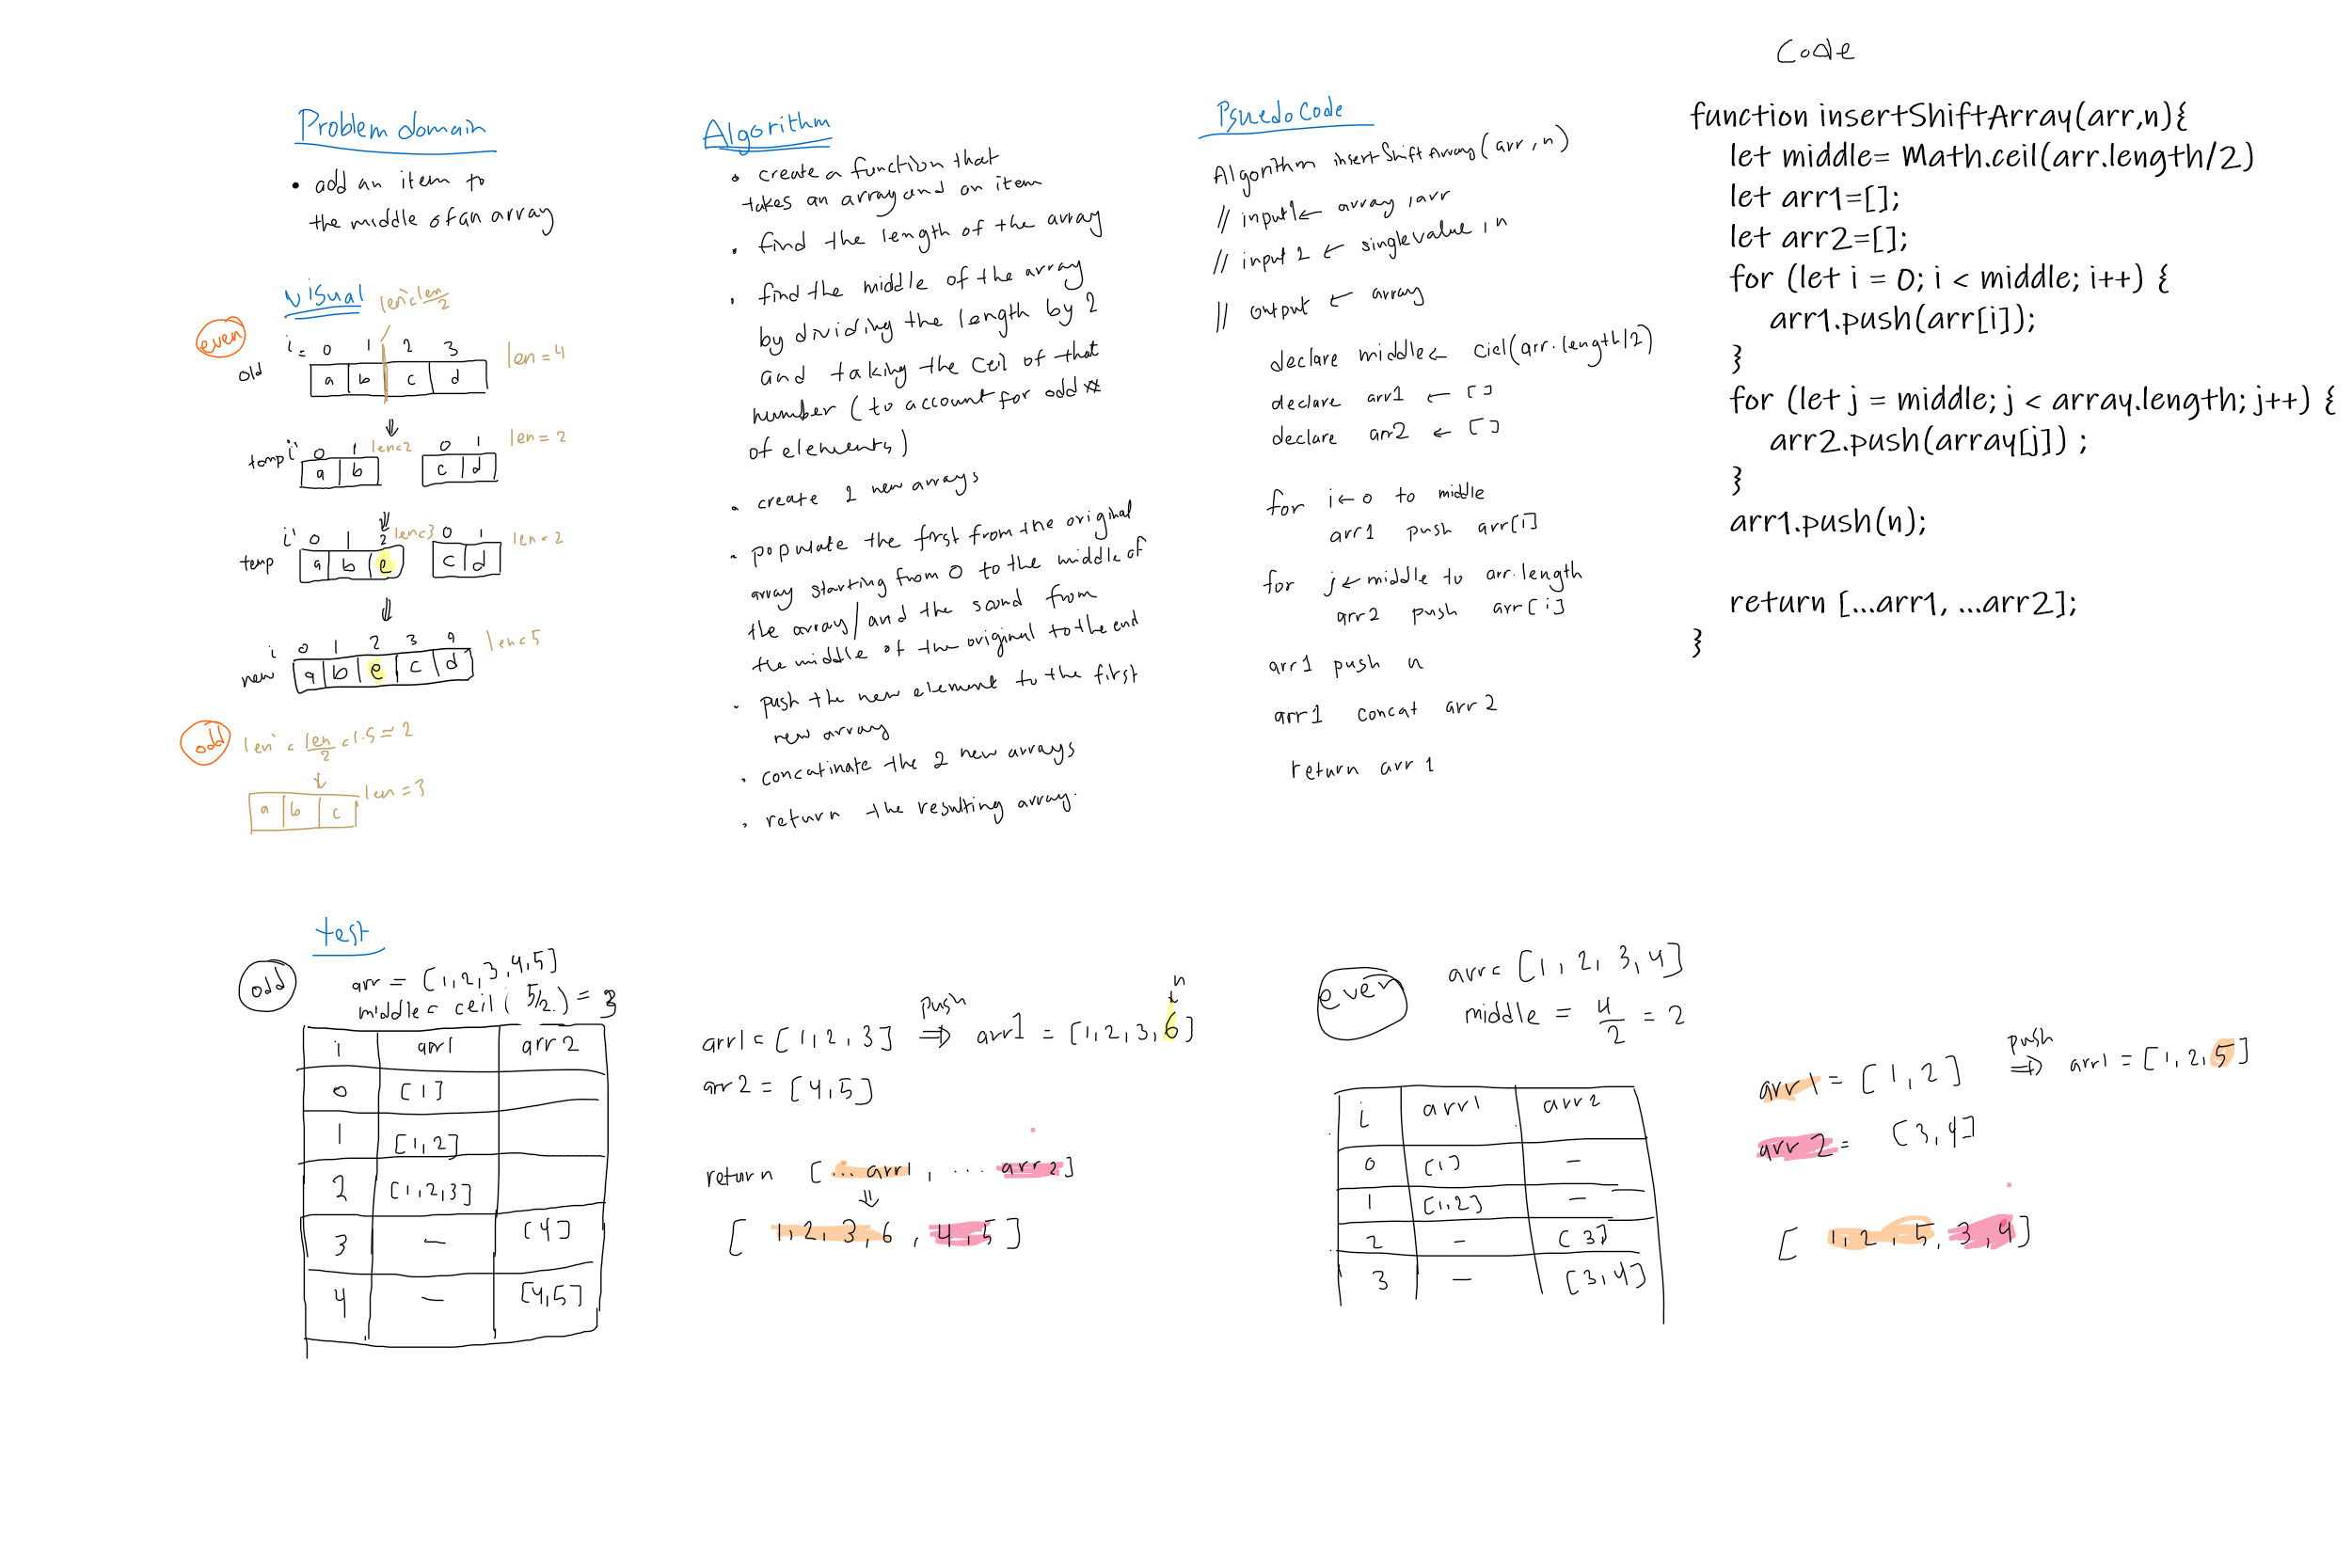 Problem domain
• add an item to
the middle of an array
Visual
len = len/2
even
i = 0 1 2 3
old a b c d len = 4
temp i 0 1 len=2 0 1 len = 2
a b c d
i 0 1 2 len=3 0 1 len = 2
temp a b e c d
i 0 1 2 3 4 len=5
new a b e c d
odd len = len/2 = 1.5 ≈ 2
a b c len = 3
Algorithm
• create a function that
takes an array and an item
• find the length of the array
• find the middle of the array
by dividing the length by 2
and taking the ceil of that
number (to account for odd #
of elements)
• create 2 new arrays
• populate the first from the original
array starting from 0 to the middle of
the array / and the scond from
the middle of the original to the end
• push the new element to the first
new array
• concatinate the 2 new arrays
• return the resulting array.
Psuedo Code
Algorithm insertShiftArray (arr, n)
// input1 ← array, arr
// input 2 ← single value, n
// output ← array
declare middle ← ciel(arr.length/2)
declare arr1 ← []
declare arr2 ← []
for i ← 0 to middle
arr1 push arr[i]
for j ← middle to arr.length
arr2 push arr[i]
arr1 push n
arr1 concat arr2
return arr1
Code
function insertShiftArray(arr,n){
let middle= Math.ceil(arr.length/2)
let arr1=[];
let arr2=[];
for (let i = 0; i < middle; i++) {
arr1.push(arr[i]);
}
for (let j = middle; j < array.length; j++) {
arr2.push(array[j]) ;
}
arr1.push(n);
return [...arr1, ...arr2];
}
test
odd
arr = [1,2,3,4,5]
middle = ceil (5/2) = 3
i arr1 arr2
0 [1]
1 [1,2]
2 [1,2,3]
3 - [4]
4 - [4,5]
n
arr1 = [1,2,3] push ⇒ arr1 = [1,2,3,6]
arr2 = [4,5]
return [... arr1, ... arr2]
[1,2,3,6,4,5]
even
arr = [1,2,3,4]
middle = 4/2 = 2
i arr1 arr2
0 [1] -
1 [1,2] -
2 - [3]
3 - [3,4]
arr1 = [1,2] push ⇒ arr1 = [1,2,5]
arr2 = [3,4]
[1,2,5,3,4]